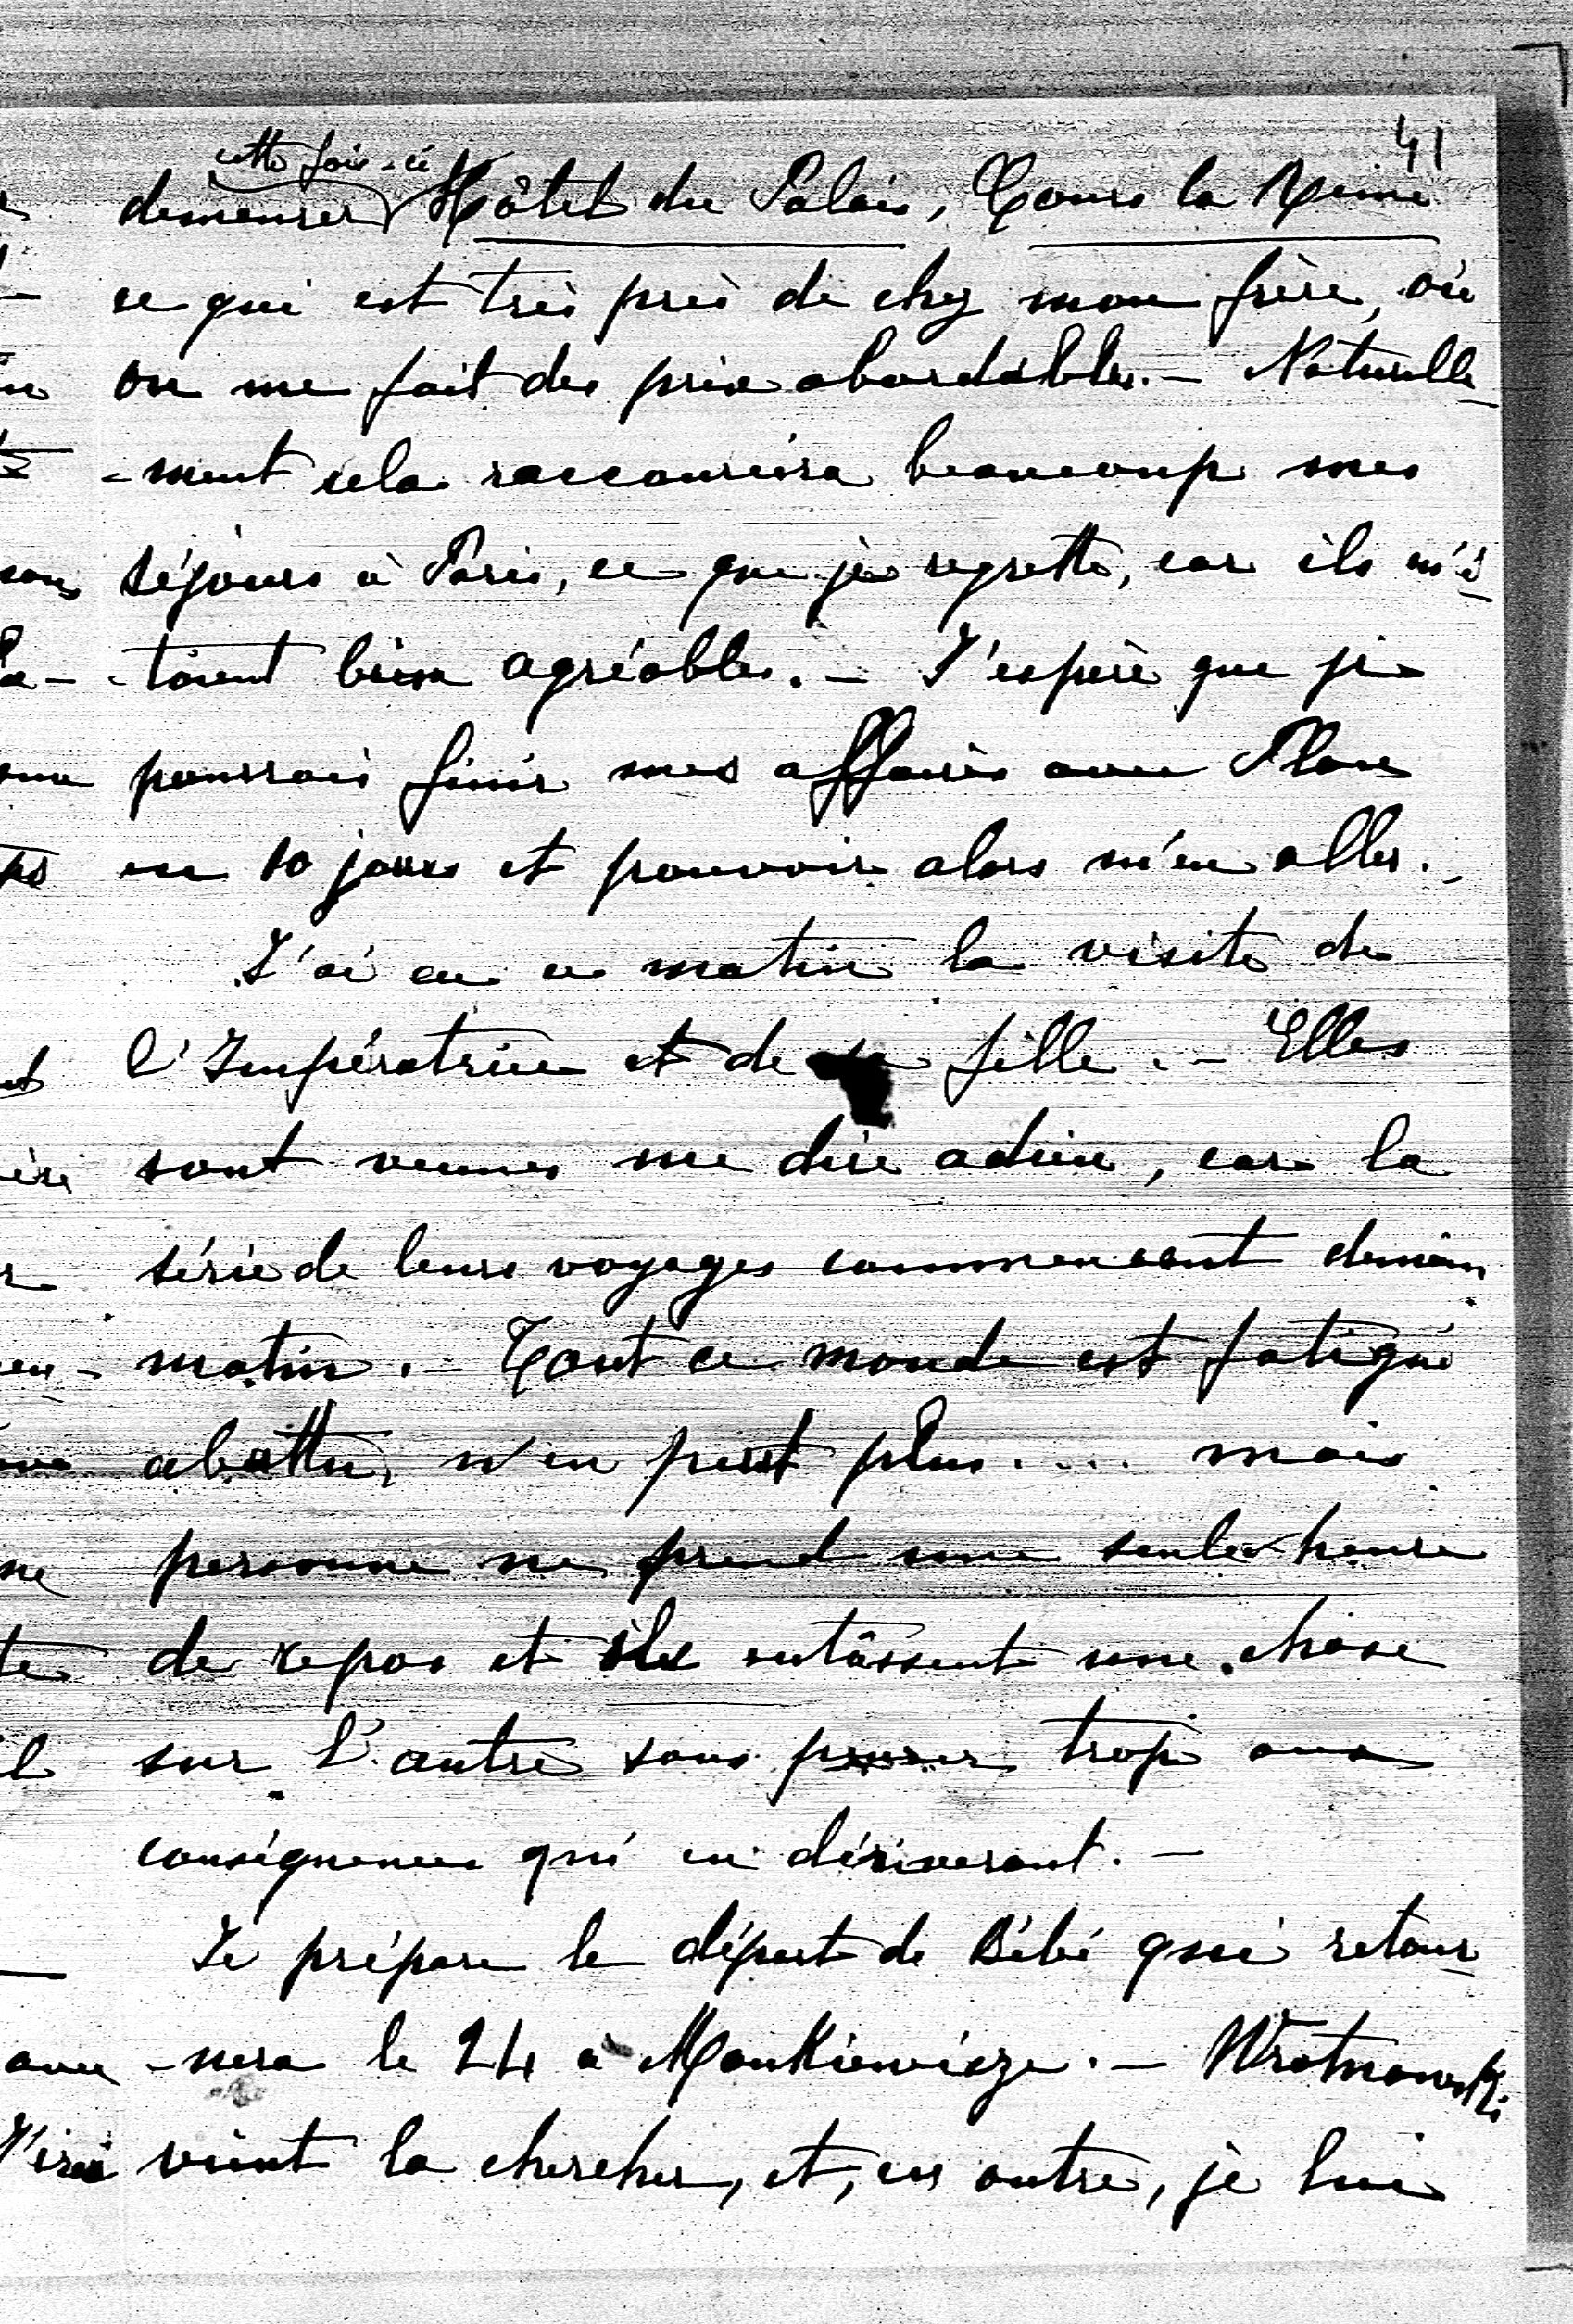 41
cette fois-ci
demeurer Hôtel du Palais, Cours la Reine
ce qui est très près de chez mon frère, où
on me fait des prix abordables. – Naturelle
-ment cela raccourcira beaucoup mes
séjours à Paris, ce que je regrette, car ils m'é
-taient bien agréables. – J'espère que je
pourrais finir mes affaires avec
en 10 jours et pouvoir alors m'en aller. –
J'ai eu ce matin la visite de
l'Impératrice et de sa fille. – Elles
sont venues me dire adieu, car la
série de leurs voyages commencent demain
matin. – Tout ce monde est fatigué
abattu, n'en peut plus.... mais
personne ne prend une seule heure
de repos et ils entâssent une chose
sur l'autre sans trop aux
conséquences qui en dériveront. –
Je prépare le départ de Bébé qui retour
-nera le 24 à Mankiewicze. – Wrotnowski
vient la chercher, et, en outre, je lui